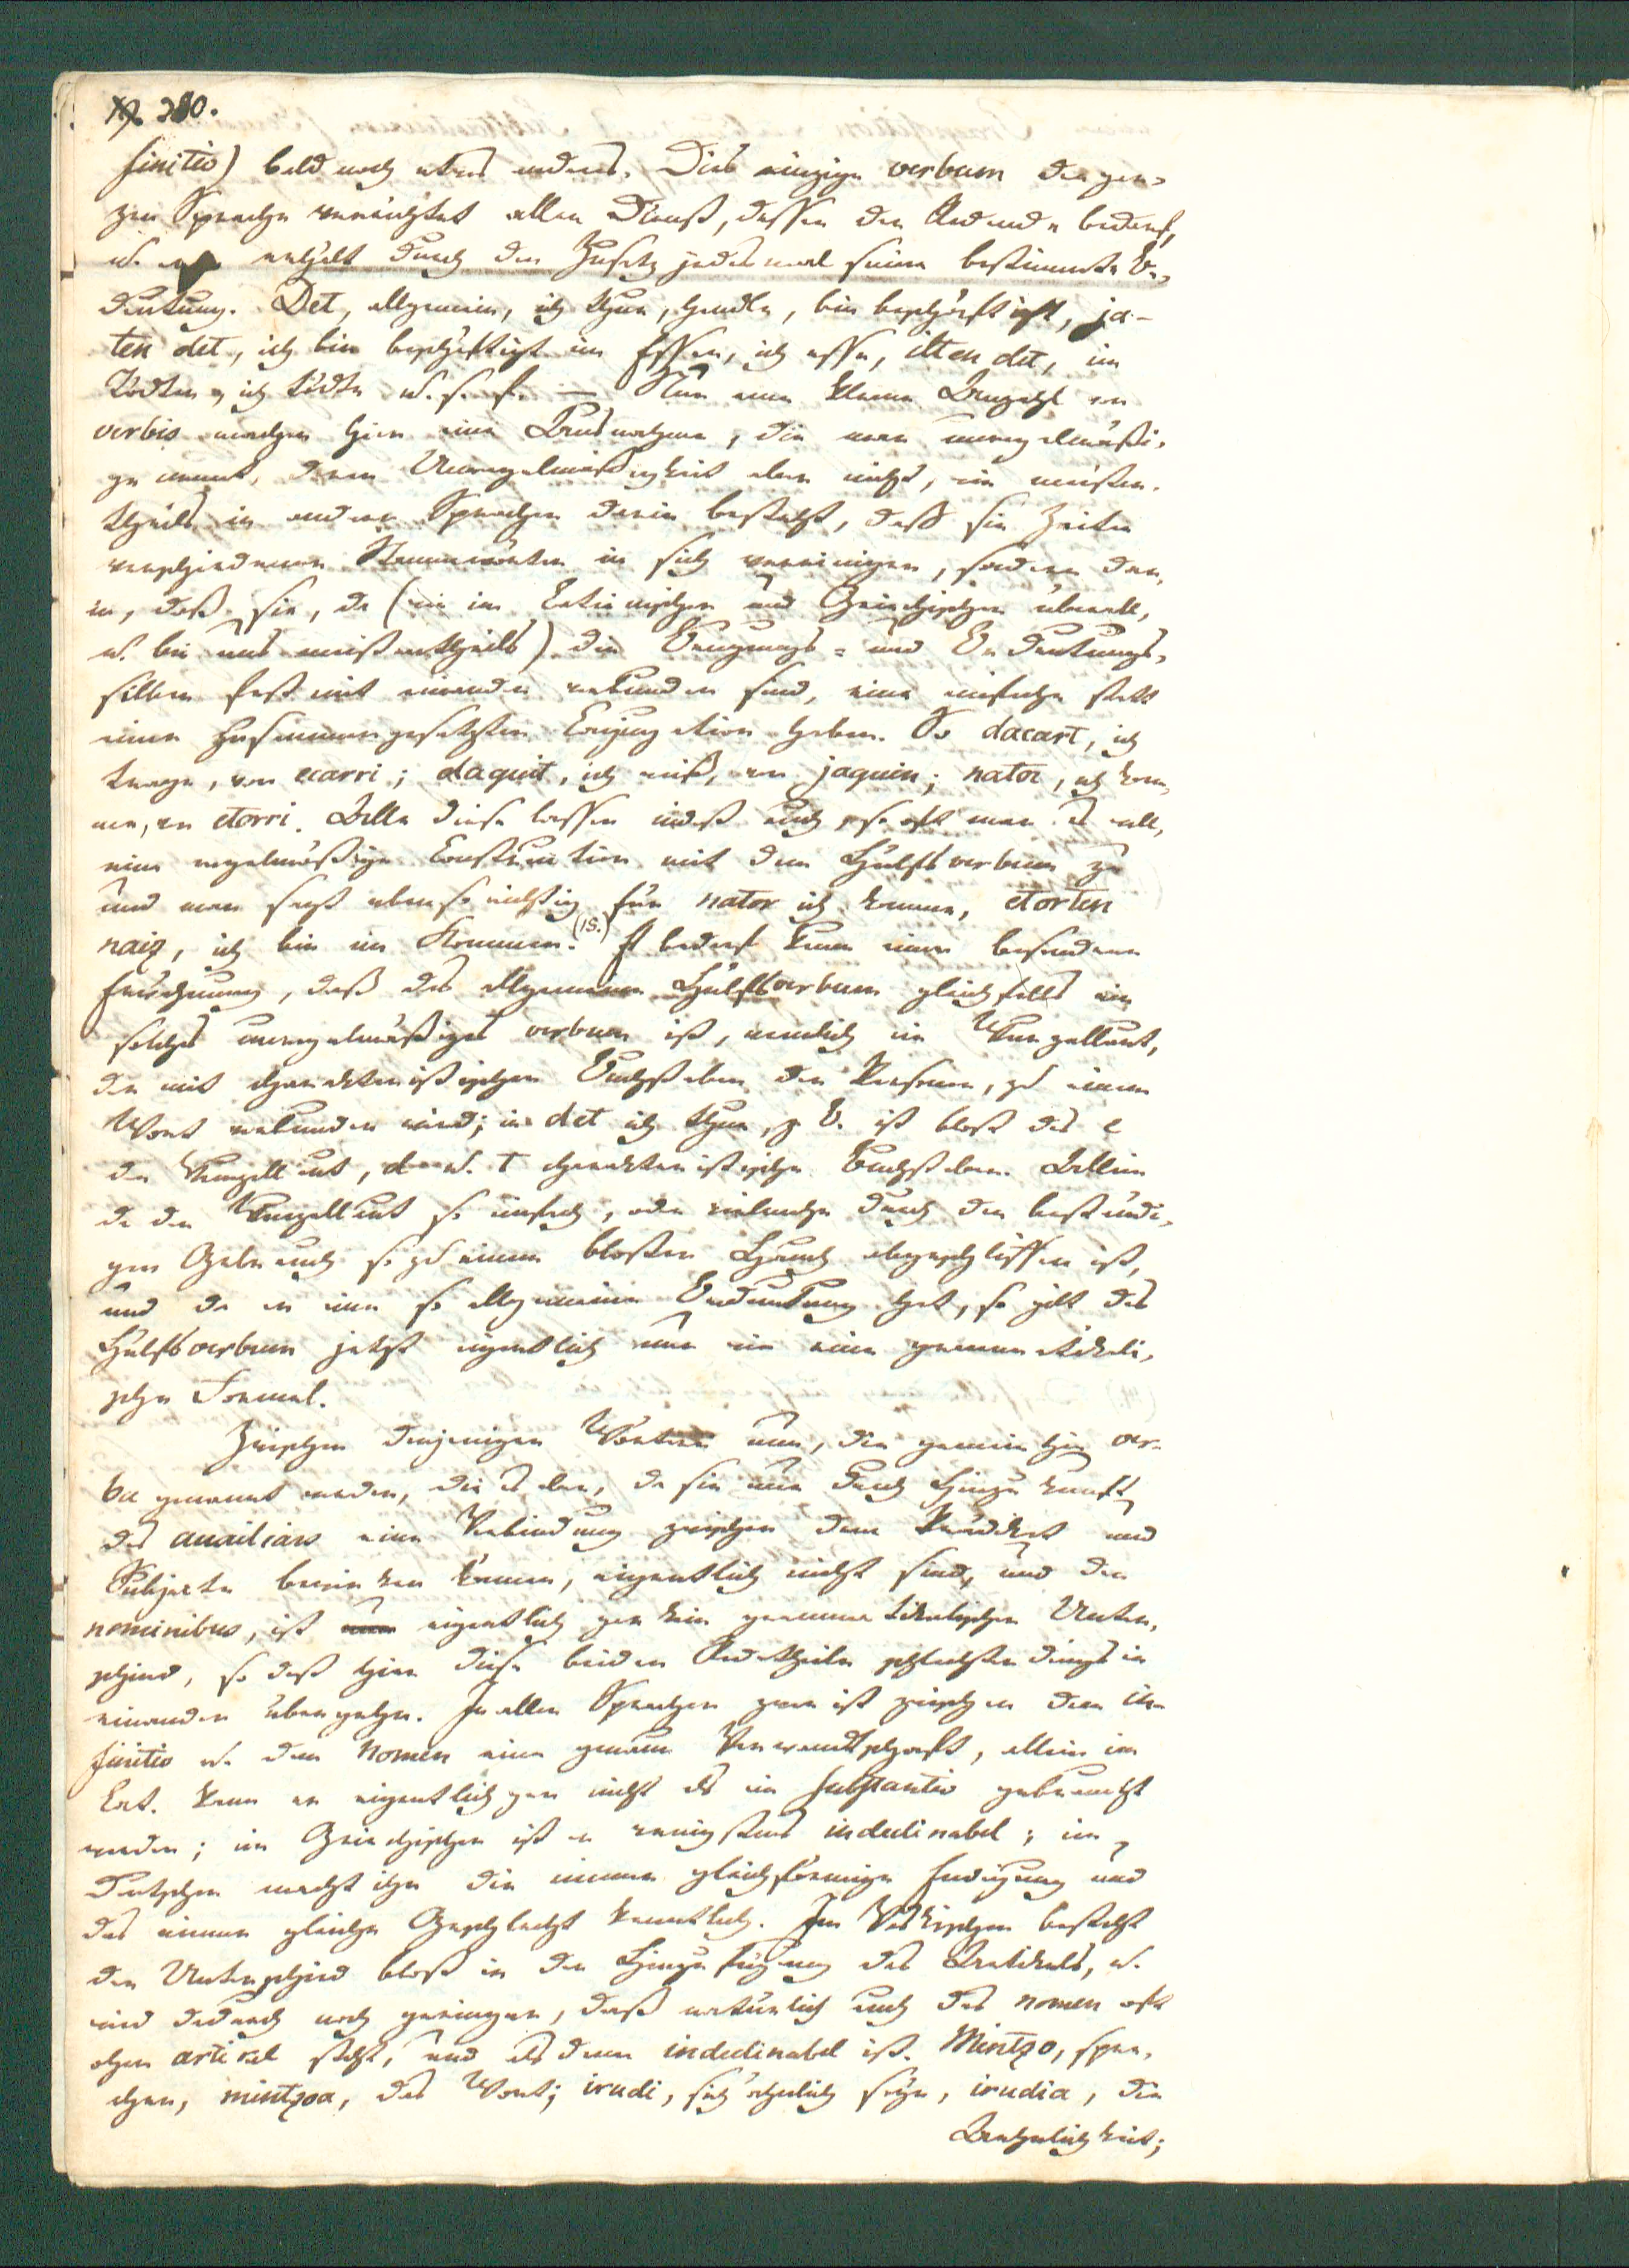 280.
finitiv) bald noch etwas anderes. Dies einzige verbum der gan-
zen Sprache verrichtet allen Dienst, dessen der Redende bedarf,
u. erhält durch den Zusatz jedesmal seine bestimmte Be-
deutung. Det, allgemein, ich thue, handle, bin beschäftigt, ja-
ten det, ich bin beschäftigt im Essen, ich esse, ilten det, im
Tödten, ich tödte u. s. f. — Nur eine kleine Anzahl von
verbis machen hier eine Ausnahme, die man unregelmäßi-
ge nennt, deren Unregelmäßigkeit aber nicht, wie meisten-
theils in andern Sprachen darin besteht, daß sie Zeiten
verschiedener Stammwörter in sich vereinigen, sondern dar-
in, daß sie, da (wie im Lateinischen und Griechischen überall,
u. bei uns meistentheils) die Beugungs- und Bedeutungs-
silben fest mit einander verbunden sind, eine einfache statt
einer zusammengesetzten Conjugation haben. So dacart, ich
trage, von ecarri; daquit, ich weiß, von jaquin; nator, ich kom-
me, von etorri. Alle diese lassen indeß auch, so oft man es will,
eine regelmäßige Construction mit dem Hülfsverbum zu
und man sagt ebenso richtig für nator ich komme, etorten
naiz, ich bin im Kommen. (15.) Es bedarf kaum einer besondern
Erwähnung, daß das allgemeine Hülfsverbum gleichfalls ein
solches unregelmäßiges verbum ist, nemlich ein Wurzellaut,
der mit charakteristischen Buchstaben der Personen, zu einem
Wort verbunden wird; in det ich thue, z. B. ist bloß das e
der Wurzellaut, d u. t charakteristische Buchstaben. Allein
da der Wurzellaut so einfach, oder vielmehr durch den bestän-
gen Gebrauch so zu einem bloßen Hauch abgeschliffen ist,
und da er eine so allgemeine Bedeutung hat, so gilt das
Hülfsverbum jetzt eigentlich nur wie eine grammatikali-
sche Formel.
Zwischen denjenigen Wörtern nun, die gemeinhin ver-
ba genannt werden, die es aber, da sie nur durch Hinzukunft
des auxiliars eine Verbindung zwischen dem Prädikat und
Subjecte bewirken können, eigentlich nicht sind, und den
nominibus, ist eigentlich gar kein grammatikalischer Unter-
schied, so daß hier diese beiden Redetheile schlechterdings in
einander übergehn. In allen Sprachen zwar ist zwischen dem in-
finitiv u. dem Nomen eine genaue Verwandtschaft, allein im
Lat. kann er eigentlich gar nicht als ein substantiv gebraucht
werden; im Griechischen ist er wenigstens indeclinabel; im
Deutschen macht ihn die immer gleichförmige Endigung und
das immer gleiche Geschlecht kenntlich. Im Vaskischen besteht
der Unterschied bloß in der Hinzufügung des Artikels, u.
wird dadurch noch geringer, daß natürlich auch das nomen oft
ohne artikel steht, und alsdann indeclinabel ist. Mintzo, spre-
chen, mintzoa, das Wort; irudi, sich ähnlich seyn, irudia, die
Aehnlichkeit;